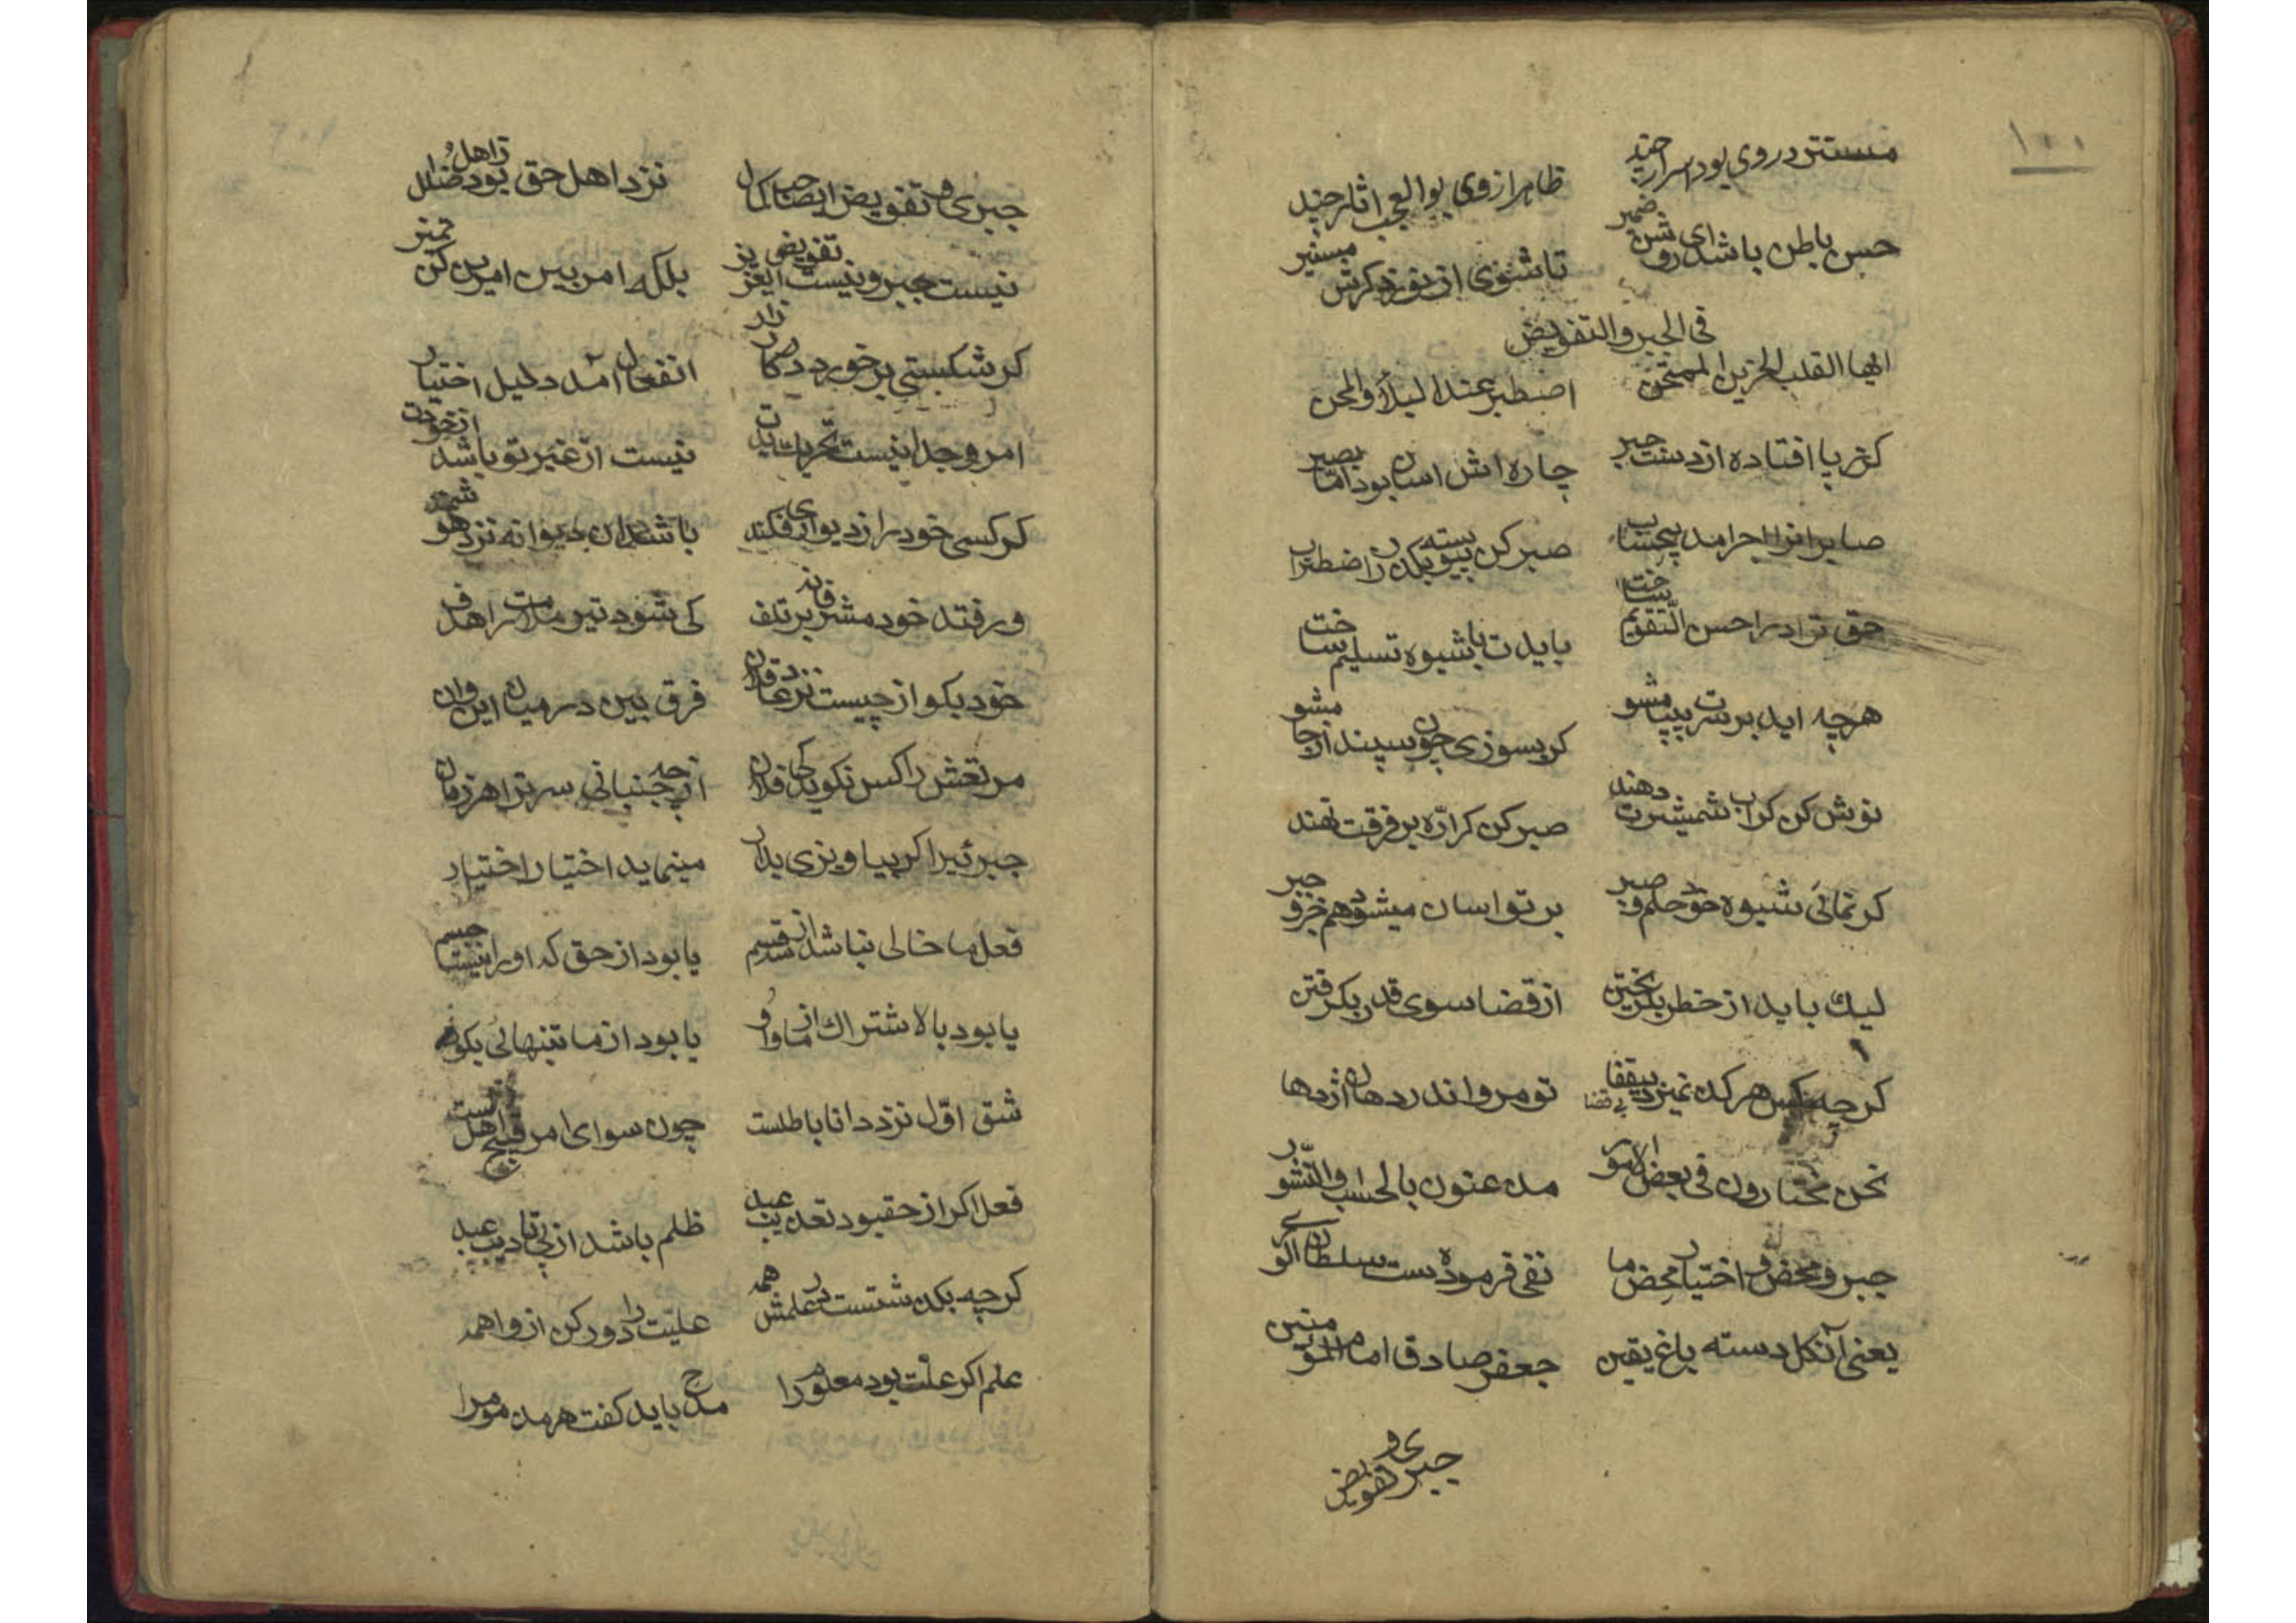 ۱۰۰
مستتر در وی بود اسرار چند ظاهر از وی بوالعجب اثار چند
حس باطن باشد ای روشن ضمیر تا شوی از نور ذکرش مستنیر
فی الجبر والتفویض
ایها القلب الحزین الممتحن اصطبر عند البلاء والمحن
کز پا افتاده از دست جبر چاره اش اسان بود اما بصیر
صابرانرا اجر امد بیحساب صبر کن پیوسته بگذر ز اضطراب
حق ترا در احسن التقویم ساخت بایدت با شیوه تسلیم ساخت
هرچه اید بر سرت بیپا مشو کر بسوزی چون سپند از جا مشو
نوش کن کر اب شمشیرت دهند صبر کن کر ارّه بر فرقت نهند
کر نمائی شیوه خود حلم و صبر بر تو اسان میشود هم خیر و جبر
لیك باید از خطر بکریختن از قضا سوی قدر بکرفتن
کرچه کس هرکه نمیرد بیقضا تو مرو اندر دهان اژدها
نحن مختارون فی بعض الامور مدعنون بالحساب والنّشور
جبر و محض و اختیار محض ما نفی فرموده ست سلطان الوری
یعنی آنکل دسته باغ یقین جعفر صادق امام المؤمنین
جبری و تفویض
جبری و تفویض ایصاحب کمال نزد اهل حق بود ز اهل ضلال
نیست جبر و نیست تفویض ایعزیز بلکه امر بین امرین کن تمیز
کر شکستی بر خورد در کار زار انفعال آمد دلیل اختیار
امر وجدانیست تحریك یدت نیست از غیر تو باشد از خودت
کر کسی خود را ز دیواری فکند باشد ان دیوانه نزد هوشمند
ور فتد خود مشرف اند بر تلف کی شود تیر ملامت را هدف
خود بکو از چیست نزد عاقلان فرق بین در میان این وان
مرتعش را کس نکوید کی فلان از چه جنبانی سرت را هر زمان
جبرئیرا کر بیاویزی بدار مینماید اختیار اختیار
فعل ما خالی نباشد از سه قسم یا بود از حق که او را نیست جسم
یا بود بالاشتراك از ما و او یا بود از ما تنهائی بکو
شق اوّل نزد دانا باطلست چون سوای امر قبیح اهل است
فعل اکر از حق بود تعذیب عبد ظلم باشد از پی تادیب عبد
کرچه بکذشتست در علمش همه علیّت را دور کن از واهمه
علم اکر علّت بود معلوم را مدح باید کفت هر مذموم را